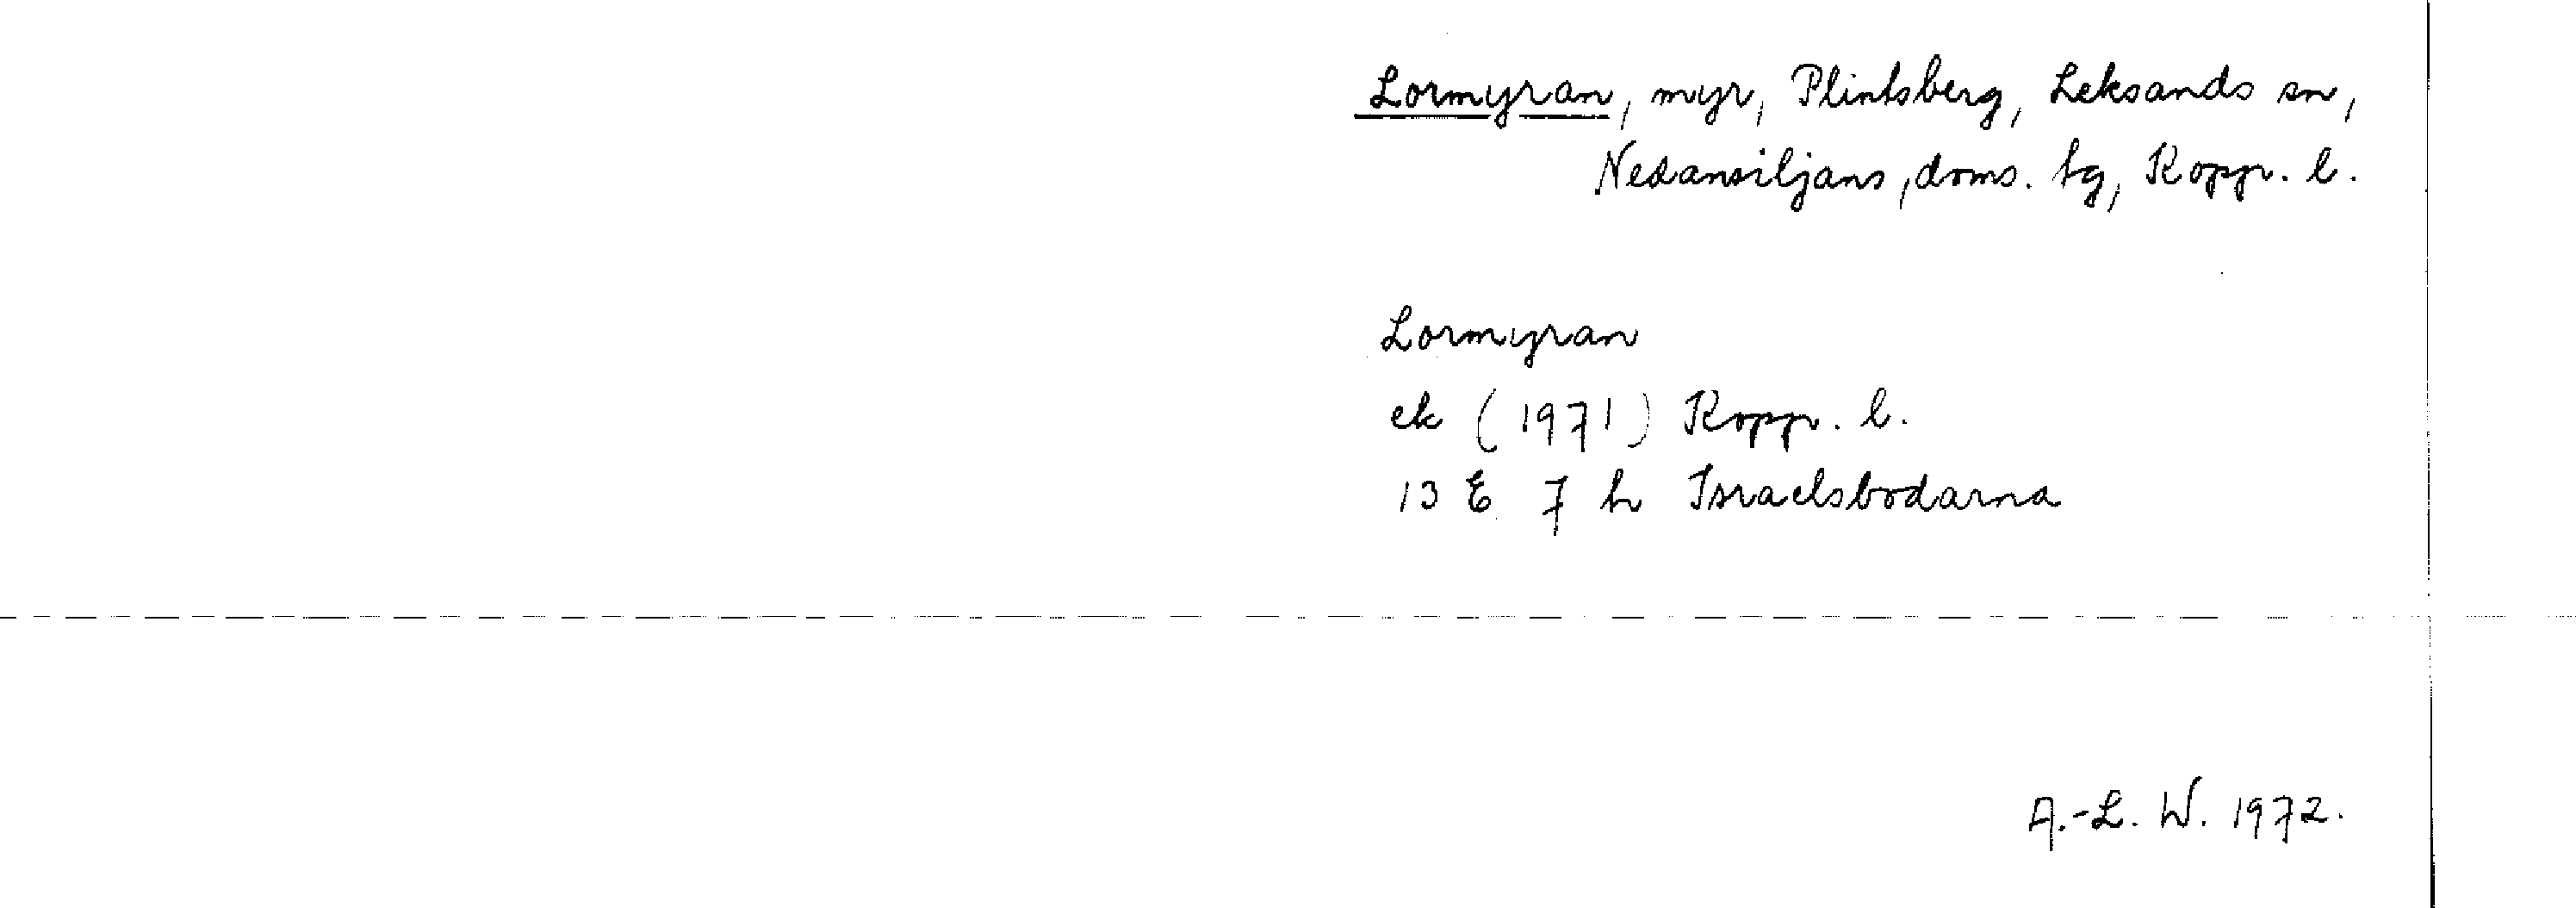 Lormyran, myr, Plintsberg, Leksands sn,
Nedansiljans, doms. tg, Koppr. l.
Lormyran
ek (1971) Koppr. l.
13 E 7 h Israelsbodarna
A.-L. W. 1972.